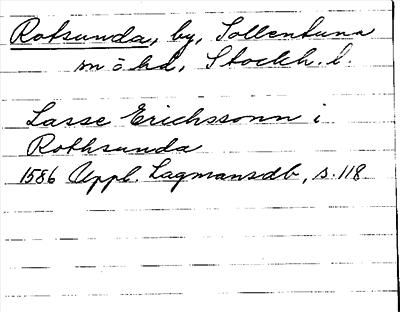 Rotsunda, by, Sollentuna
sn o hd, Stockh. l.
Lasse Erichssonn i
Rothsunda
1586 Uppl. Lagmansdb, s. 118